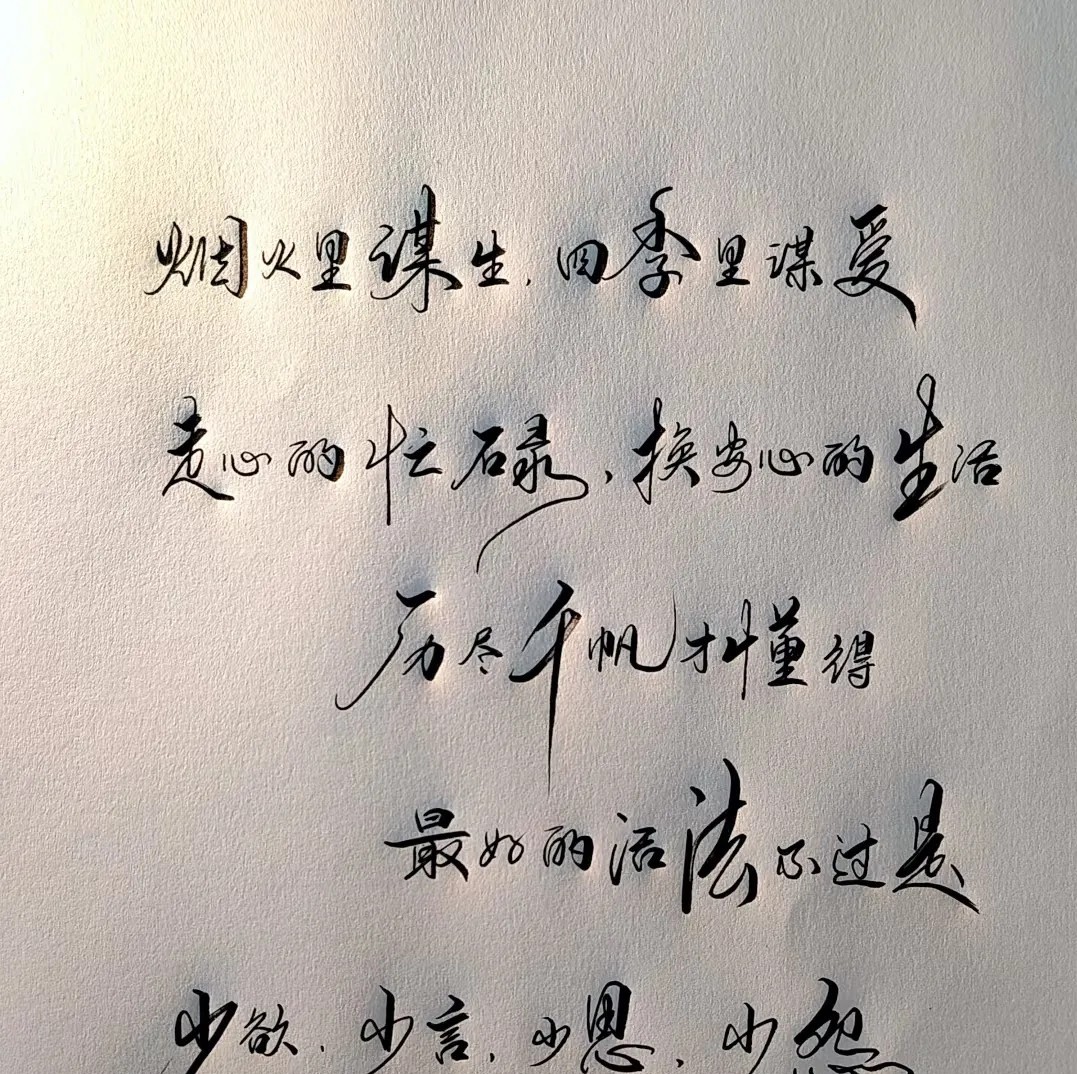 烟火里谋生，四季里谋爱
走心的忙碌，换安心的生活
历尽千帆才懂得
最好的活法不过是
少欲、少言、少思、少怨